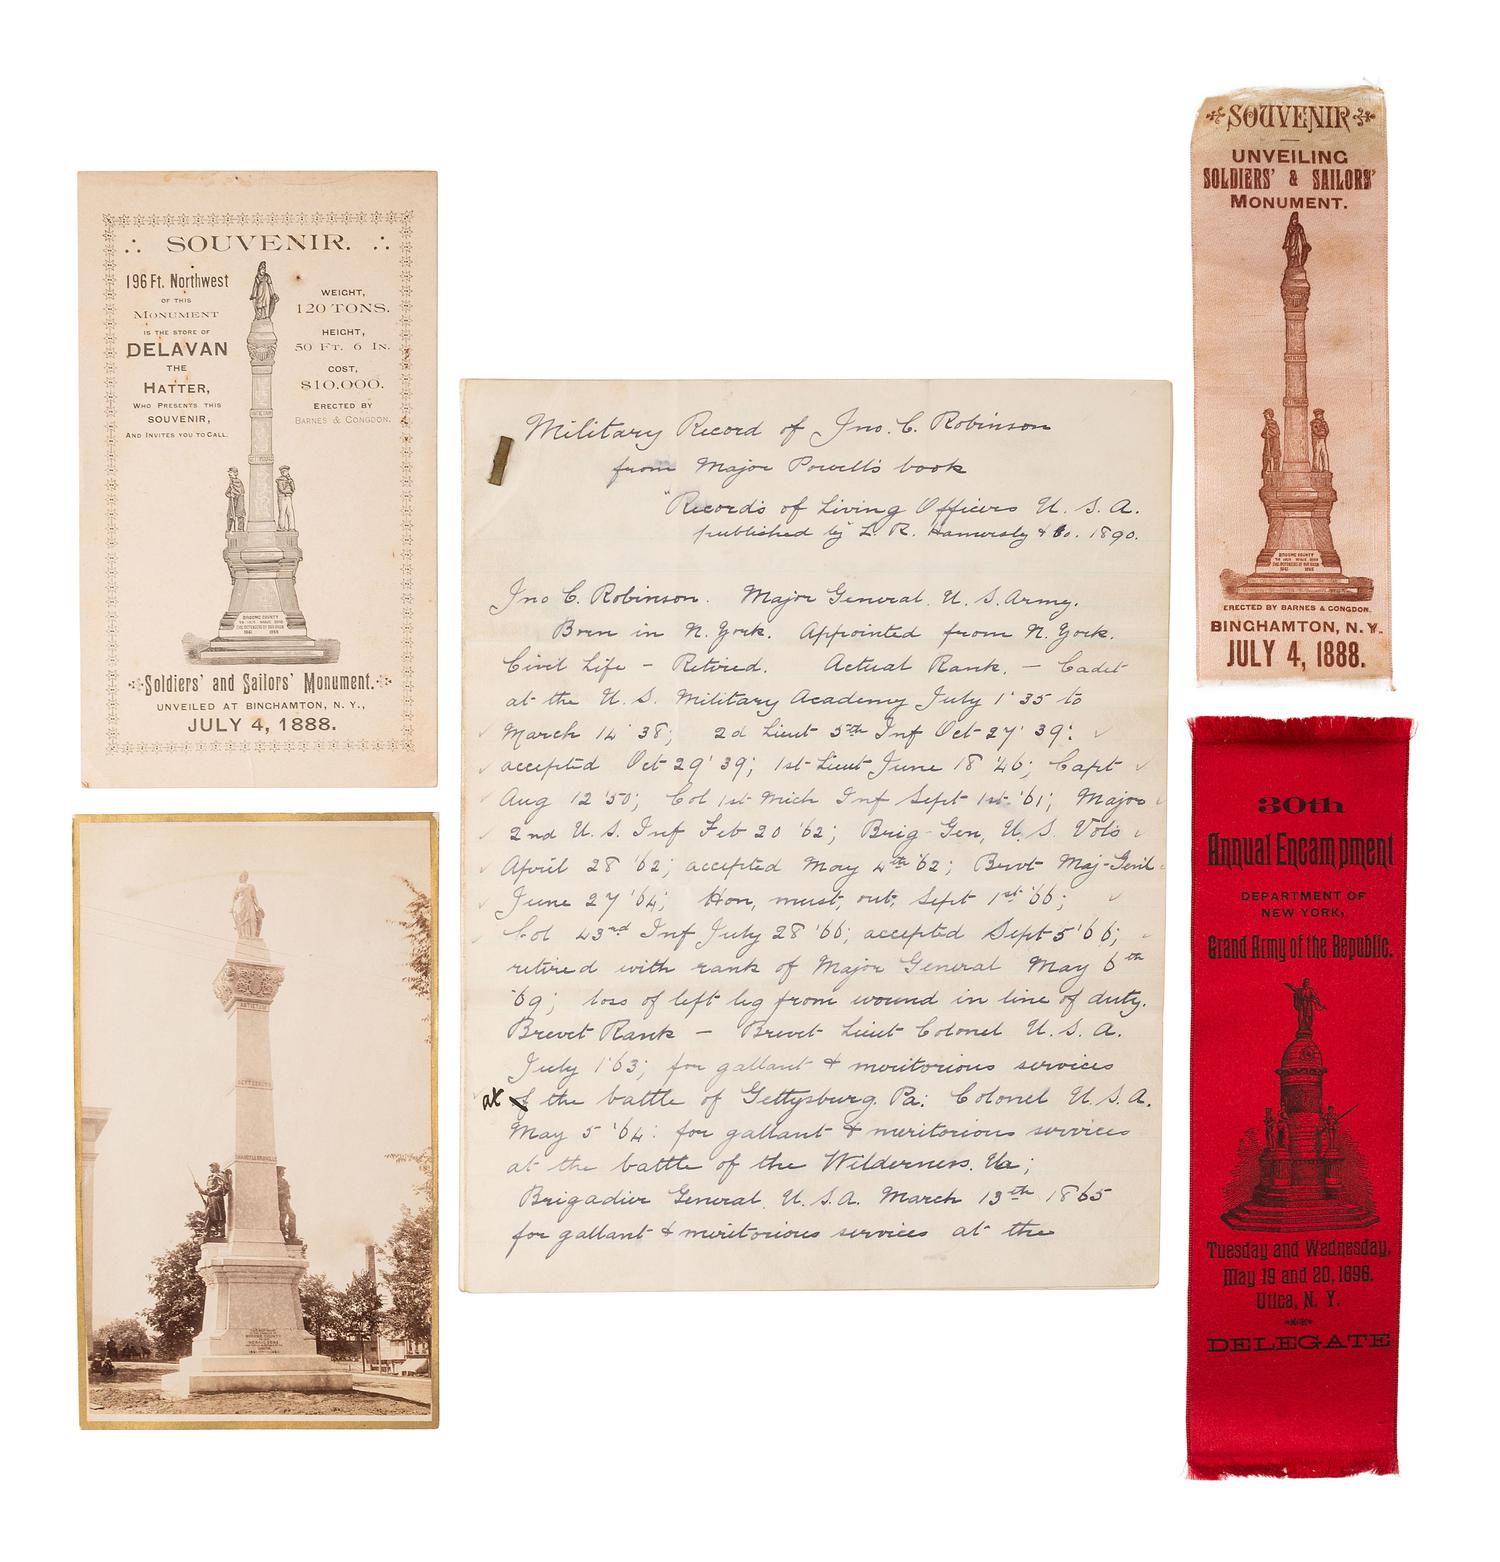 SOUVENIR.
196 Ft. Northwest
OF THIS
MONUMENT
IS THE STORE OF
DELAVAN
THE
HATTER,
WHO PRESENTS THIS
SOUVENIR,
AND INVITES YOU TO CALL.
WEIGHT,
120 TONS.
HEIGHT,
50 FT. 6 IN.
COST,
$10.000.
ERECTED BY
BARNES & CONGDON.
BROOME COUNTY
1861 1865
Soldiers' and Sailors' Monument.
UNVEILED AT BINGHAMTON, N. Y.,
JULY 4, 1888.
GETTYSBURG
BROOME COUNTY
Military Record of Jno. C. Robinson
from Major Powell's book
"Records of Living Officers U. S. A.
published by L. R. Hamersly & Co. 1890.
Jno C. Robinson. Major General. U. S. Army.
Born in N. York. Appointed from N. York.
Civil Life - Retired. Actual Rank. - Cadet
at the U. S. Military Academy July 1' 35 to
March 14 '38; 2d Lieut 5th Inf Oct 27' 39;
accepted Oct 29' 39; 1st Lieut June 18 '46; Capt
Aug 12 '50; Col 1st Mich Inf Sept 1st '61; Major
2nd U. S. Inf Feb 20 '62; Brig-Gen, U. S. Vols
April 28 '62; accepted May 4th '62; Brvt Maj-Genl
June 27 '64; Hon, must, out, Sept 1st '66;
Col 43rd Inf July 28 '66; accepted Sept 5 '66;
retired with rank of Major General May 6th
'69; loss of left leg from wound in line of duty.
Brevet Rank - Brevet Lieut Colonel U. S. A.
July 1 '63; for gallant & meritorious services
at the battle of Gettysburg. Pa: Colonel U. S. A.
May 5 '64: for gallant & meritorious services
at the battle of the Wilderness. Va;
Brigadier General. U. S. A. March 13th 1865
for gallant & meritorious services at the
SOUVENIR
UNVEILING
SOLDIERS' & SAILORS'
MONUMENT.
BROOME COUNTY
TO HER WHO WERE
THE DEFENDERS OF OUR UNION
1861 1865
ERECTED BY BARNES & CONGDON.
BINGHAMTON, N. Y.
JULY 4, 1888.
30th
Annual Encampment
DEPARTMENT OF
NEW YORK,
Grand Army of the Republic.
Tuesday and Wednesday,
May 19 and 20, 1896.
Utica, N. Y.
DELEGATE